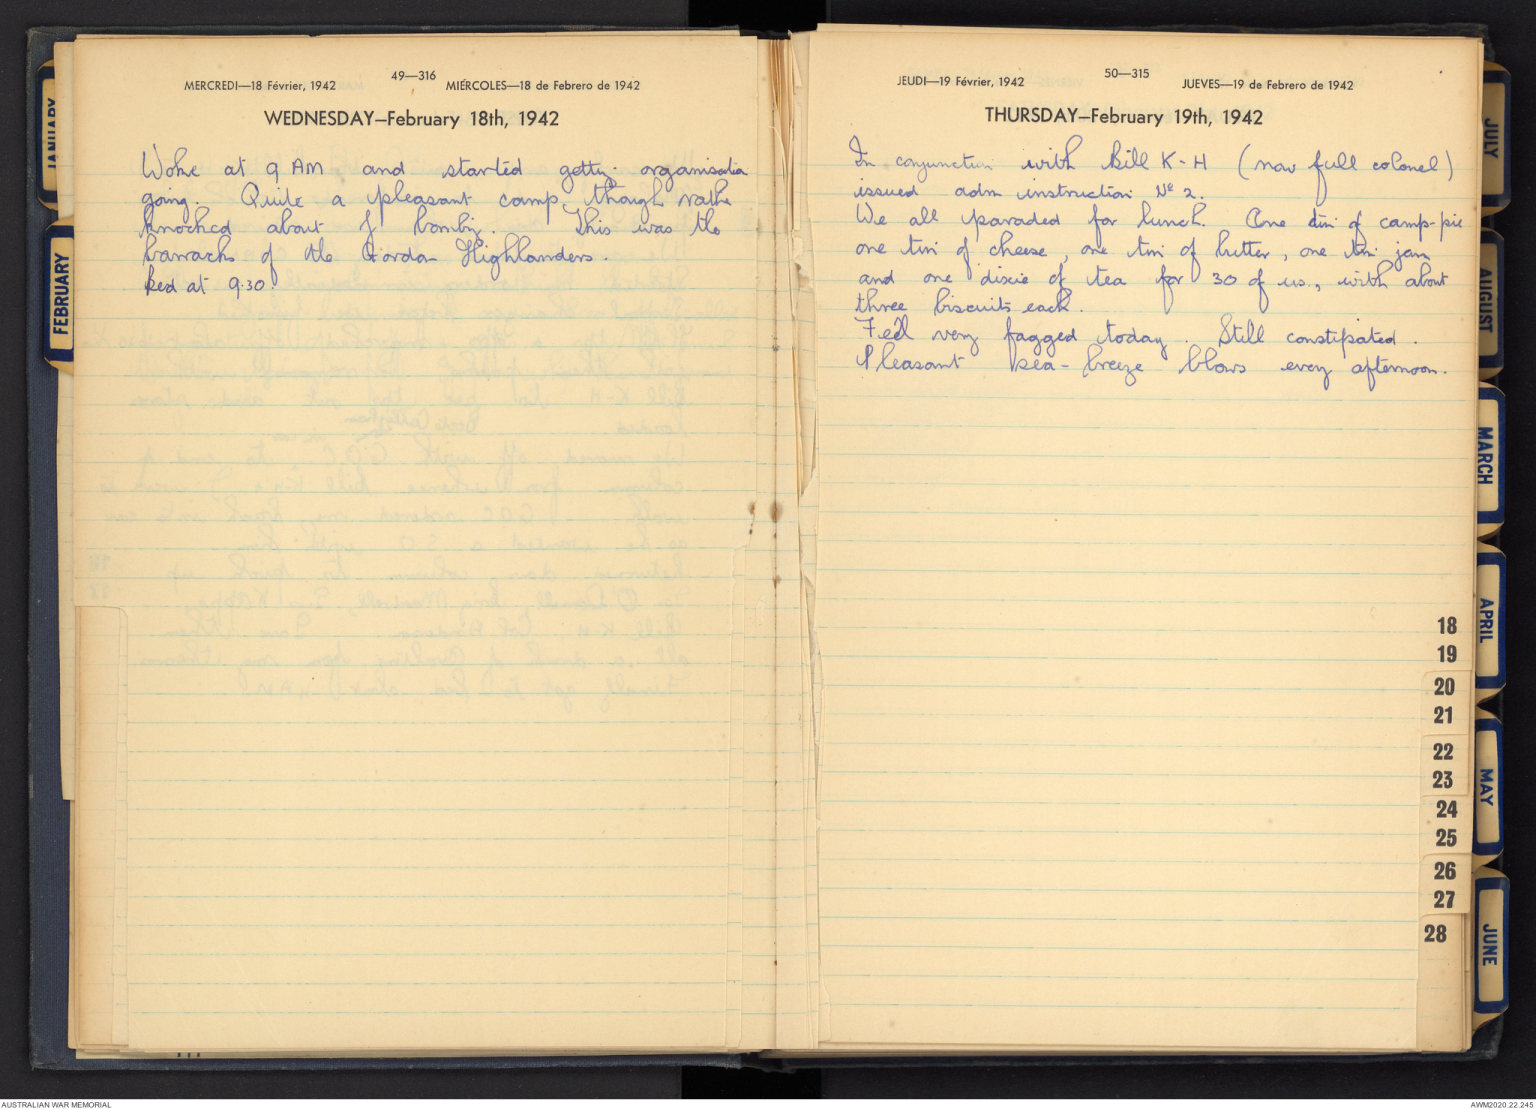 49—316
MERCREDI—18 Février, 1942 MIÉRCOLES—18 de Febrero de 1942
WEDNESDAY—February 18th, 1942
Woke at 9 AM and started getting organisation
going. Quite a pleasant camp, though rather
knocked about by bombing. This was the
barracks of the Gordon Highlanders.
Bed at 9.30
50—315
JEUDI—19 Février, 1942 JUEVES—19 de Febrero de 1942
THURSDAY—February 19th, 1942
In conjunction with Bill K-H (now full colonel)
issued adm instruction No 2.
We all paraded for lunch. One tin of camp-pie
one tin of cheese, one tin of butter, one tin jam
and one dixie of tea for 30 of us, with about
three biscuits each.
Feel very fagged today. Still constipated.
Pleasant sea-breeze blows every afternoon.
JANUARY
FEBRUARY
JULY
AUGUST
MARCH
APRIL
MAY
JUNE
18
19
20
21
22
23
24
25
26
27
28
AUSTRALIAN WAR MEMORIAL
AWM2020.22.245